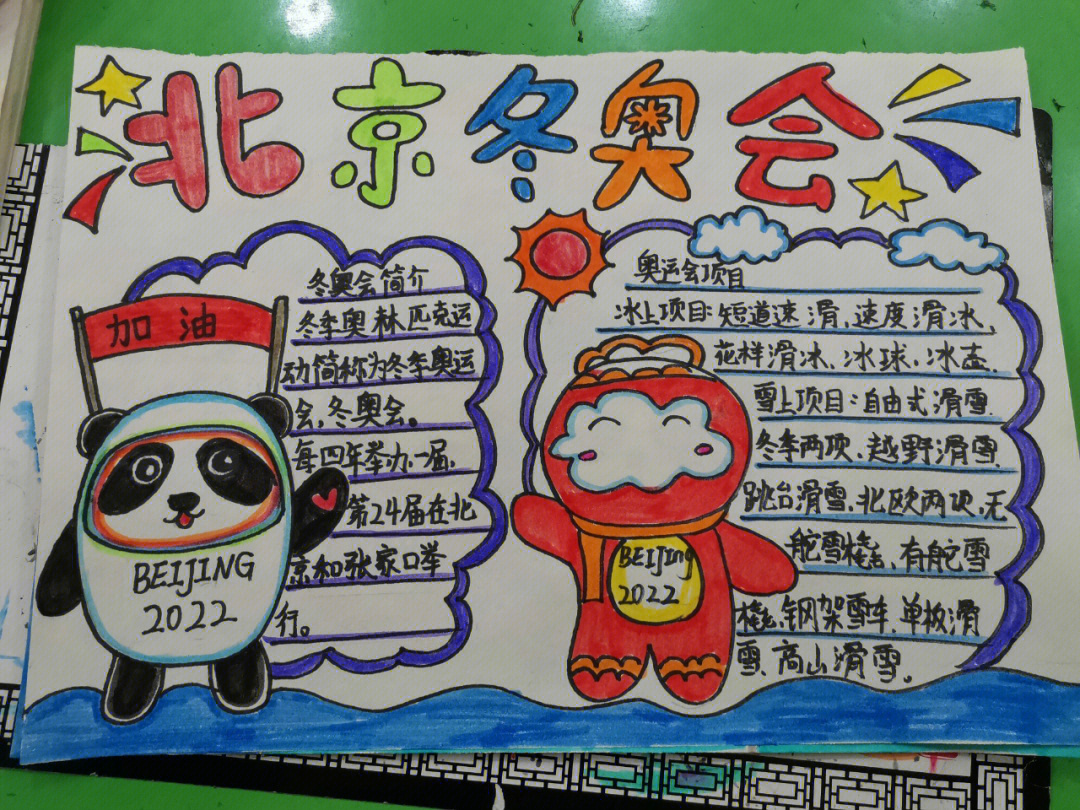 北京冬奥会
加油
BEIJING
2022
冬奥会简介
冬季奥林匹克运
动简称为冬季奥运
会,冬奥会。
每四年举办一届,
第24届在北
京和张家口举
行。
奥运会项目
冰上项目:短道速滑、速度滑冰、
花样滑冰、冰球、冰壶.
雪上项目:自由式滑雪.
冬季两项、越野滑雪.
跳台滑雪、北欧两项、无
舵雪橇、有舵雪
橇、钢架雪车、单板滑
雪、高山滑雪。
BEIJing
2022